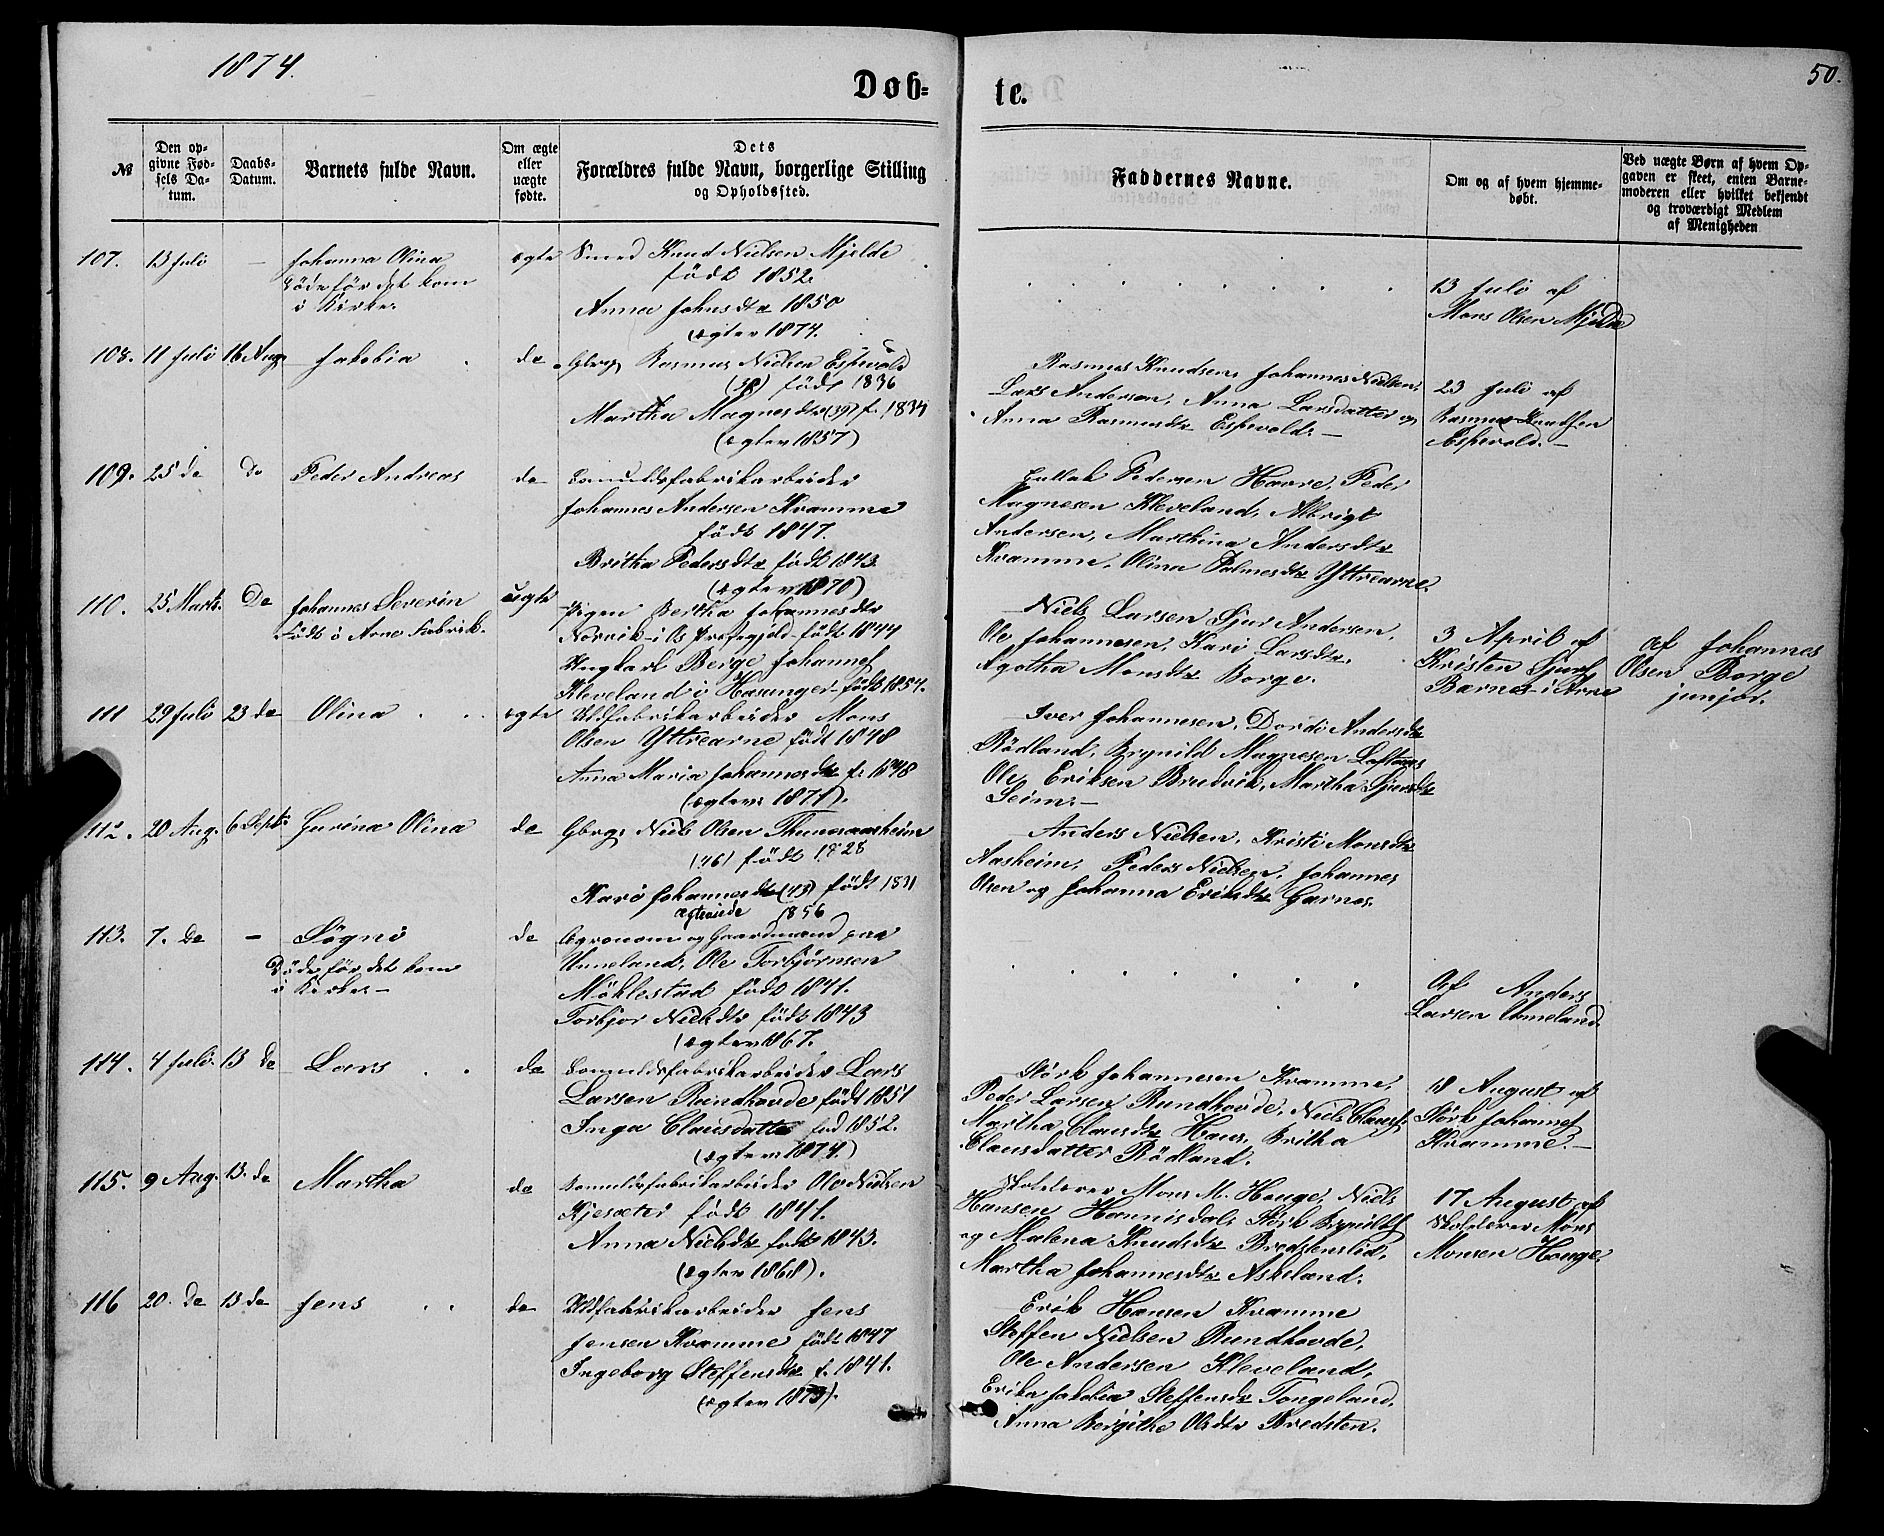 1874.
50.
Døb-
te.
№
Den op-
givne Fød-
sels Da-
tum.
Daabs-
Datum.
Barnets fulde Navn.
Om ægte
eller
uægte
fødte.
Dets
Forældres fulde Navn, borgerlige Stilling
og Opholdssted.
Faddernes Navne.
Om og af hvem hjemme-
døbt.
Ved uægte Børn af hvem Op-
gaven er skeet, enten Barne-
moderen eller hvilket bekjendt
og troværdigt Medlem
af Menigheden
107. 13 Juli - Johanna Olina
Døde før det kom
i Kirke.
ægte Smed Knud Nielsen Mjelde
født 1852.
Anna Johnsdtr 1850
(ægtev 1874.
13 Juli af
Mons Olsen Mjelde
108. 11 Juli 16 Aug. Jakobia
de Gbrg Rasmus Nielsen Espevold
(38) født 1836
Martha Magnesdtr (39) f. 1834
(ægtev 1857)
Rasmus Knudsen, Johannes Nielsen,
Lars Andersen, Anna Larsdatter og
Anna Rasmusdtr Espevold. -
23 Juli af
Rasmus Knudsen
Espevold. -
109. 25 de do Peder Andreas
de Bomuldsfabrikarbeider
Johannes Andersen Kvamme
født 1847.
Britha Pedersdtr født 1843.
(ægtev 1870)
Pedersen Havre, Peder
Magnesen Kleveland, Albrigt
Andersen, Marthina Andersdtr
Kvamme, Olina Palmesdtr Yttrearne.
110. 25 Marts. De Johannes Severin
Født i Arne Fabrik.
uægte Pigen Bertha Johannesdtr
Norvik i Os Præstegjeld - født 1844
Ungkarl Berge Johannes
Kleveland i Havinger - født 1854.
Niels Larsen Sjur Andersen,
Ole Johannesen, Kari Larsdtr.
Agotha Monsdtr Borge.
3 April af
Kristen Sjurs
Barnes i Arne
af Johannes
Olsen Borge
junjor.
111 29 Juli 23 de Olina
ægte Uldfabrikarbeider Mons
Olsen Yttrearne født 1848
Anna Maria Johannesdtr f. 1848
(ægtev: 1871).
Iver Johannesen, Dordi Andersdtr
Rødland, Brynild Magnesen
Ole Eriksen Brudvik, Martha Sjursdtr
Seim. -
112. 20 Aug. 6 Septr. Gurina Olina
de Gbrgs Niels Olsen Thunesaasheim
(46) født 1828
Kari Johannesdtr (43) født 1831
Ægteviede 1856
Anders Nielsen, Kristi Monsdtr
Aasheim, Peders Nielsen, Johannes
Olsen og Johanna Eriksdtr Garnes.
113. 7. de - Søgni
Døde før det kom
i Kirke -
de Agronom og Gaardmand paa
Unneland, Ole Torbjørnsen
Møklestad født 1841.
Torbjor Nielsdtr født 1843
(ægtev 1867.
Af Anders
Larsen Unneland.
114. 4 Juli. 13 de Lars
de Bomuldsfabrikarbeider Lars
Larsen Rundhovde født 1851
Inga Clausdatter fød 1852.
(ægtev: 1874.)
Størk Johannesen Kvamme,
Peder Larsen Rundhovde, Niels Claus.
Martha Clausdtr Haus, Britha
Clausdatter Rødland.
18 August af
Størk Johannes
Kvamme. -
115. 9 Aug. 13. de Martha
de Bomuldsfabrikarbeider Ole Nielsen
Kjesæter født 1841.
Anna Nielsdtr født 1843.
(ægtev 1868).
Skolelærer Mons M. Houge, Niels
Hansen Hannisdal, Størk Brynilds
og Malena Knudsdtr Bredstenslid,
Martha Johannesdtr Askeland.
17 August af
Skolelærer Mons
Monsen Houge.
116 20. de 13. de Jens
de Uldfabrikarbeider Jens
Jensen Kvamme født 1847
Ingeborg Steffensdtr f. 1841.
(ægtev 1873).
Erik Hansen Kvamme
Steffen Nielsen Rundhovde,
Ole Andersen Kleveland,
Erika Jakobia Steffensdtr Tongeland,
Anna Bergithe Olsdtr Bredsten.